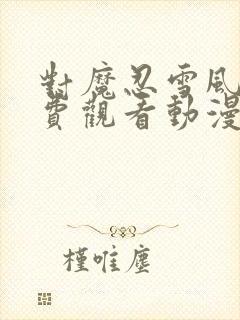 對魔忍雪風
費觀看動漫
槿唯塵